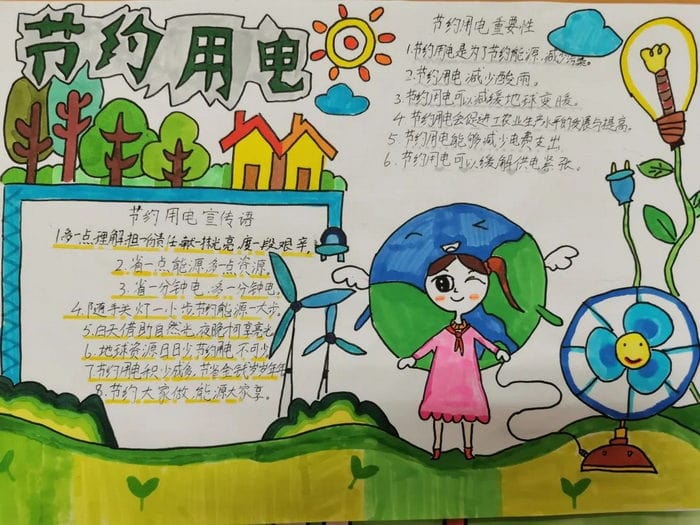 节约用电
节约用电重要性
1.节约用电是为了节约能源,减少污染。
2.节约用电,减少酸雨。
3.节约用电可以减缓地球变暖。
4.节约用电会促进工农业生产水平的发展与提高。
5.节约用电能够减少电费支出
6.节约用电可以缓解供电紧张。
节约用电宣传语
1.多一点理解担一份责任献一抹光亮,度一段艰辛,
2.省一点能源多点资源。
3.省一分钟电,多一分钟电,
4.随手关灯一小步节约能源一大步,
5.白天借助自然光,夜晚
6.地球资源日日少节约用电不可少
7.节约用电积少成多,节省金钱岁岁年年
8.节约大家做,能源大家享。